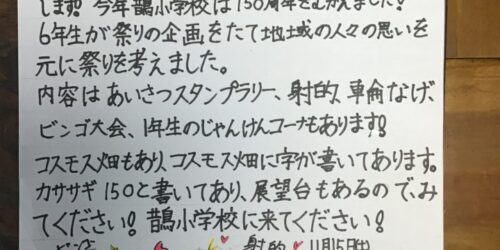 します!! 今年鵲小学校は150周年をむかえました!
6年生が祭りの企画をたて地域の人々の思いを
元に祭りを考えました。
内容はあいさつスタンプラリー、射的、車輪なげ、
ビンゴ大会、1年生のじゃんけんコーナもあります!!
コスモス畑もあり、コスモス畑に字が書いてあります。
カササギ150と書いてあり、展望台もあるので、み
てください! 鵲小学校に来てください!
射的 11月5日